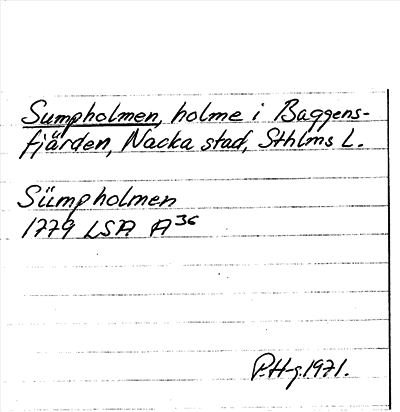 Sumpholmen, holme i Baggens-
fjärden, Nacka stad, Sthlms L.
Sümpholmen
1779 LSA A36
P.H-g.1971.